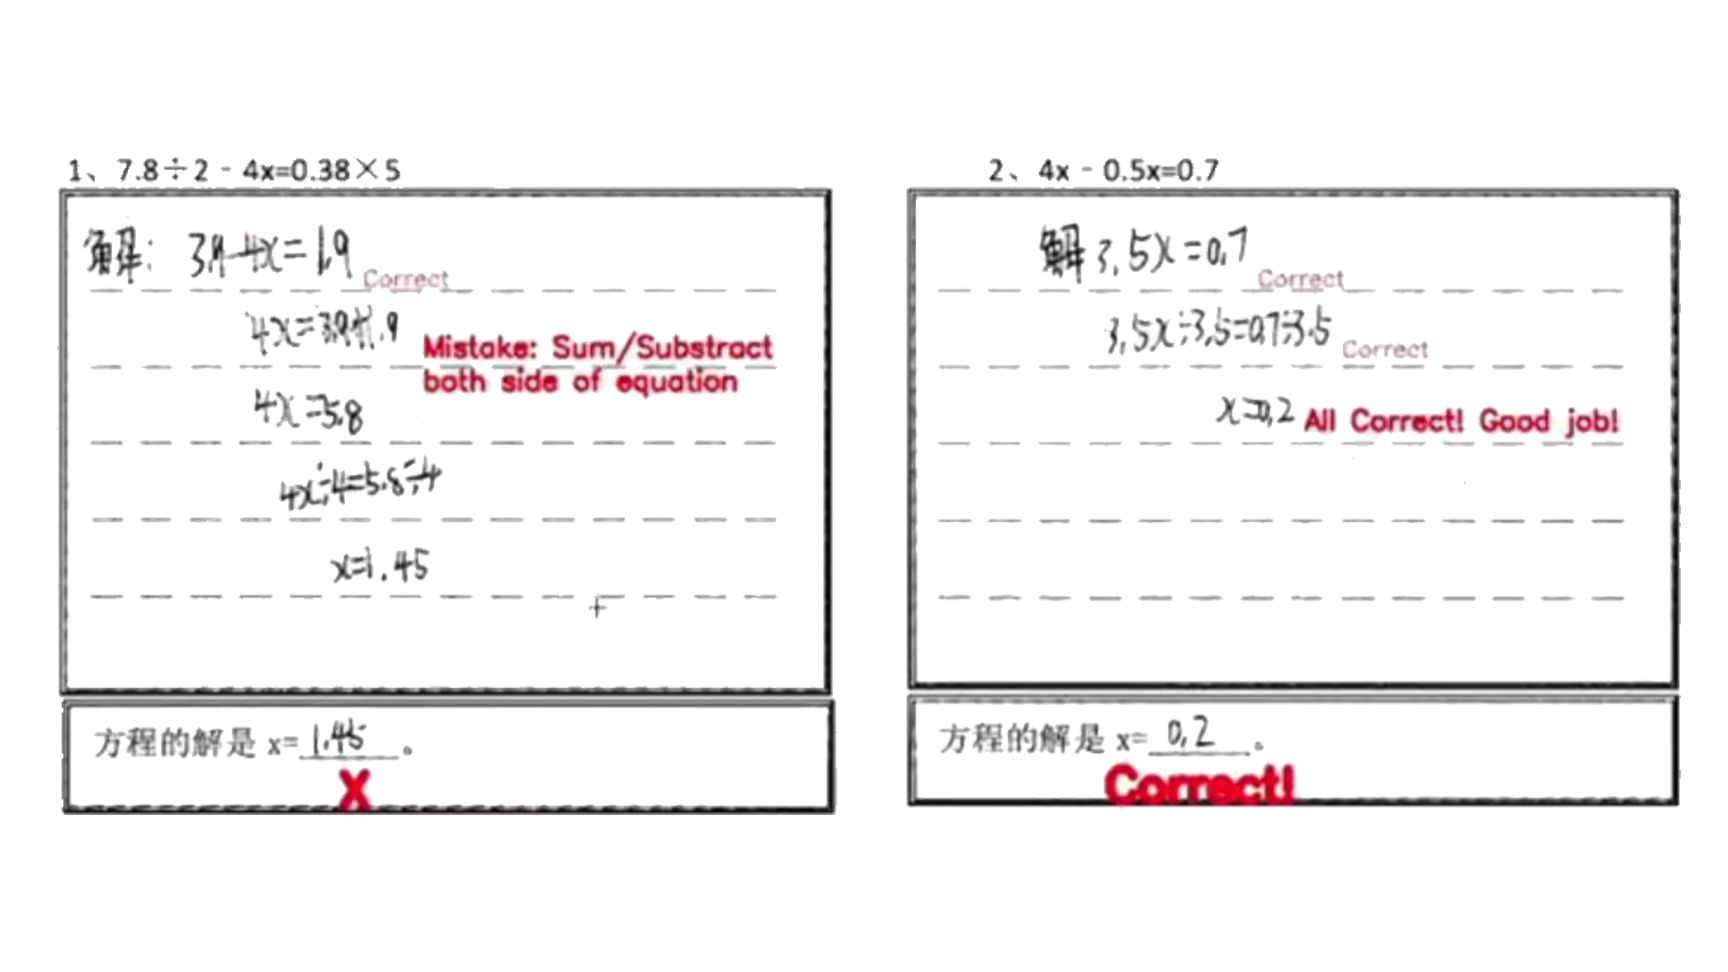 1、7.8÷2 - 4x=0.38×5
解: 3.9-4x=1.9
Correct
4x=3.9+1.9
Mistake: Sum/Substract
both side of equation
4x=5.8
4x÷4=5.8÷4
x=1.45
方程的解是 x=1.45。
X
2、4x - 0.5x=0.7
解 3.5x=0.7
Correct
3.5x÷3.5=0.7÷3.5
Correct
x=0.2 All Correct! Good job!
方程的解是 x=0.2。
Correct!